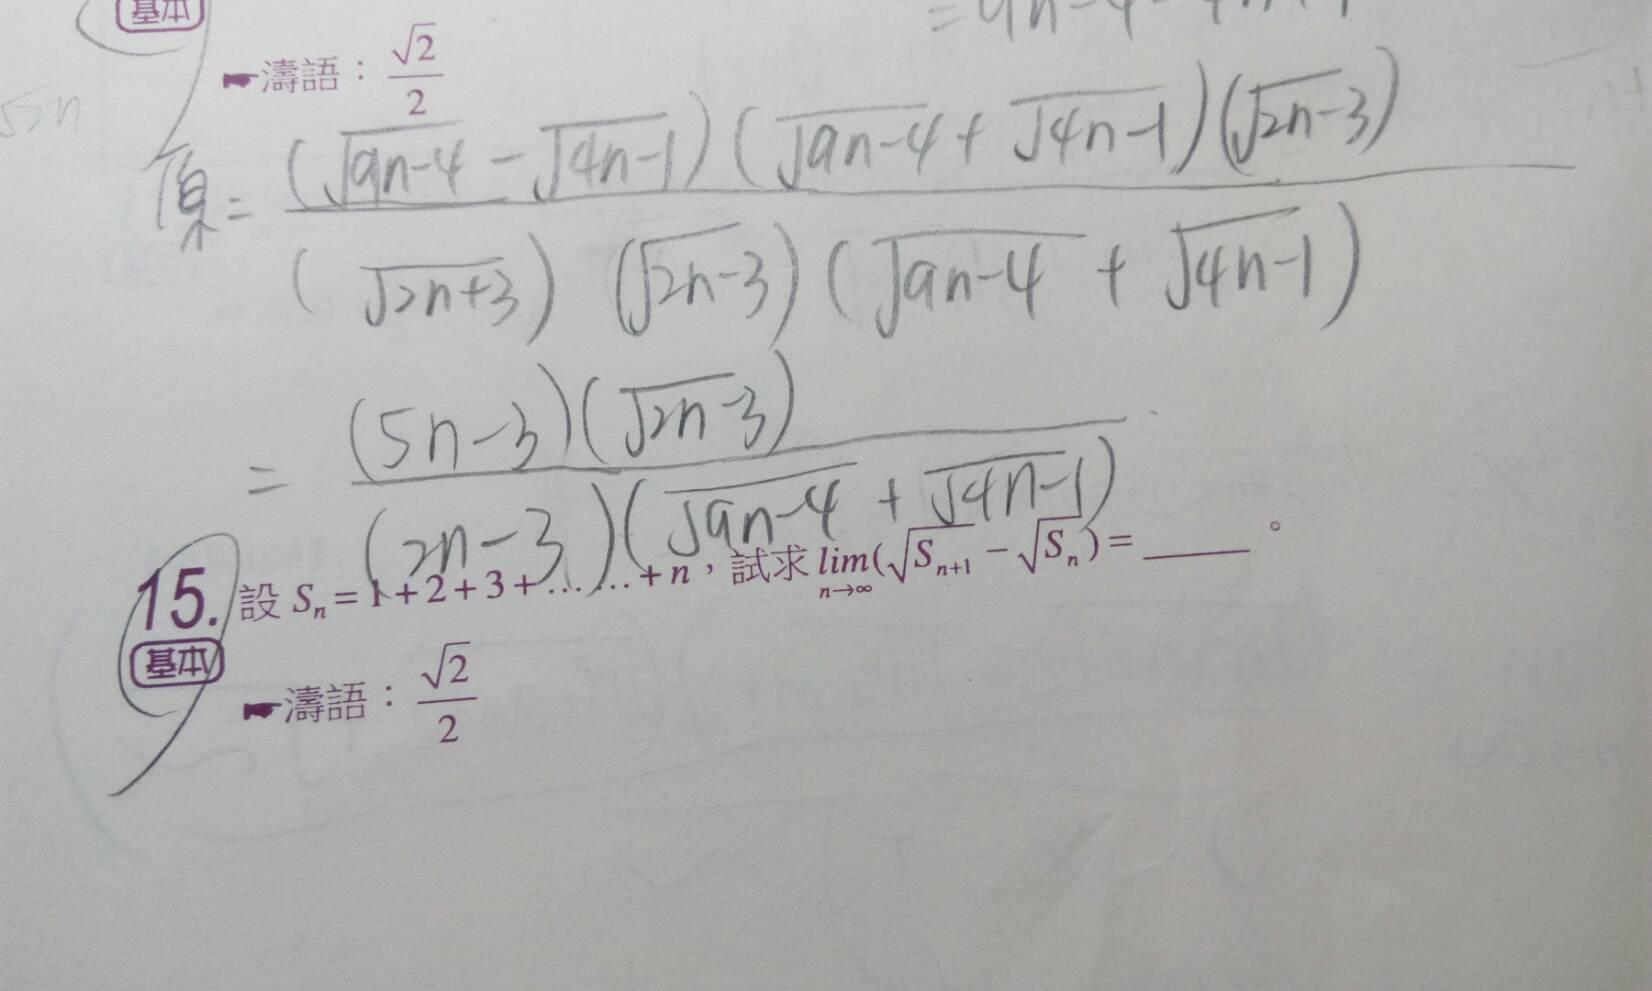 基本
濤語：√2/2
原= (√9n-4 - √4n-1)(√9n-4 + √4n-1)(√2n-3)
(√2n+3)(√2n-3)(√9n-4 + √4n-1)
= (5n-3)(√2n-3)
(2n-3)(√9n-4 + √4n-1)
15. 設 Sₙ = 1 + 2 + 3 + …… + n，試求 lim n→∞ (√Sₙ₊₁ - √Sₙ) = ＿＿＿。
基本
濤語：√2/2